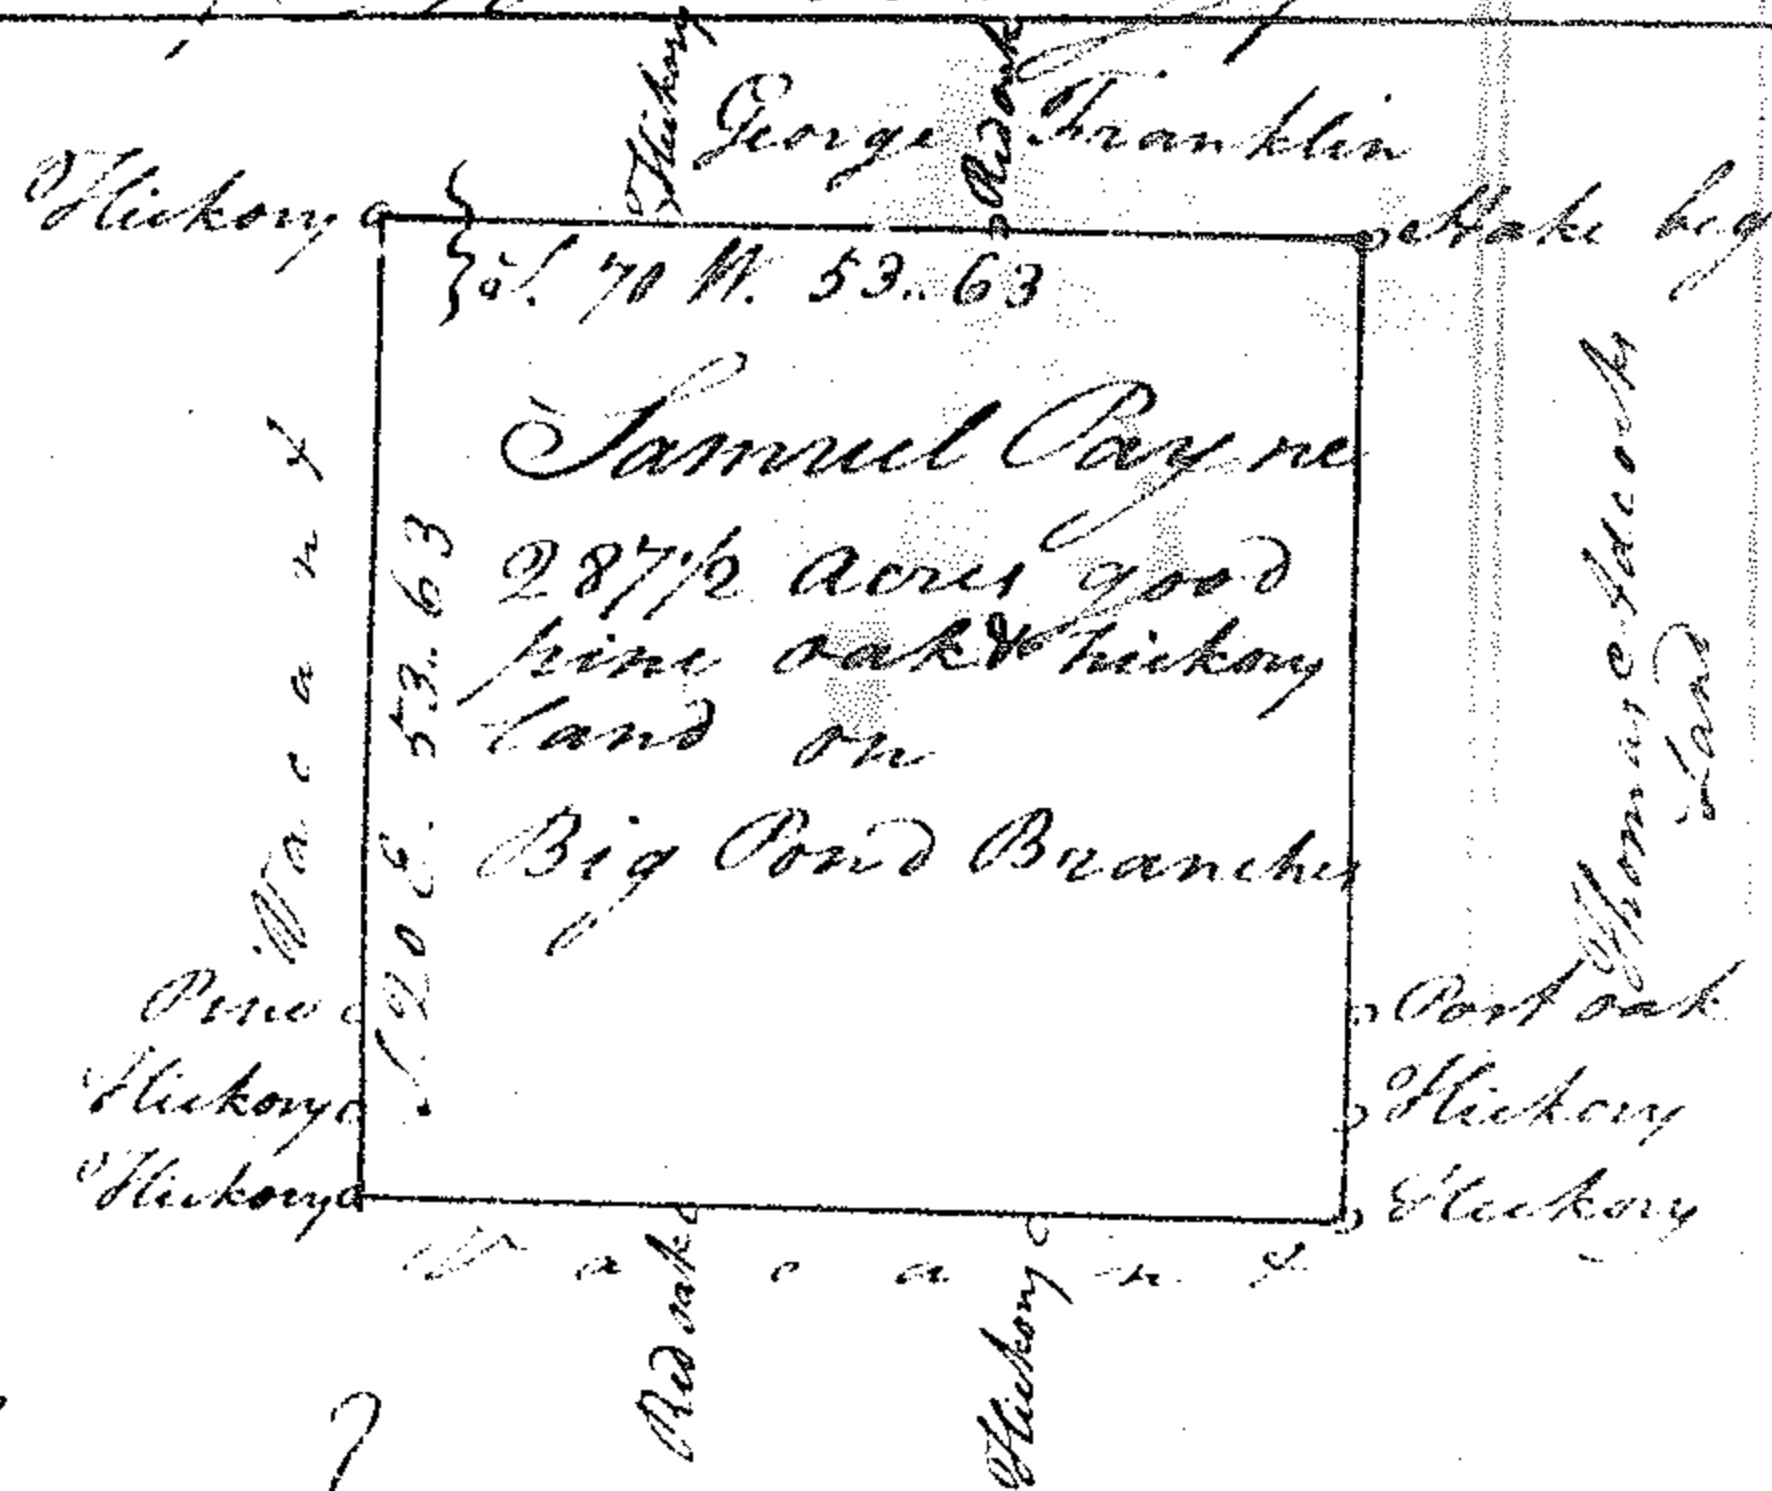 Hickory
Red oak
George Franklin
Hickory
Stake beg
S. 70 W. 53..63
Samuel Payne
287 1/2 acres good
pine oak & hickory
land on
Big Pond Branches
S 20 E. 53..63
Vacant
Thomas Adcock
Land
Pine
Hickory
Hickory
Post oak
Hickory
Hickory
Vacant
Red oak
Hickory